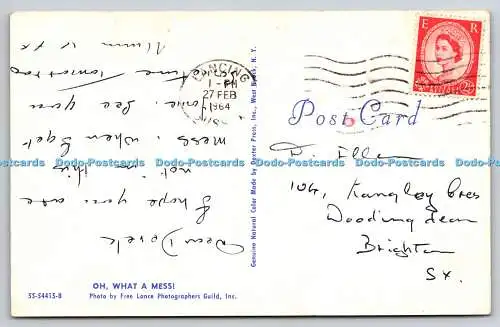 Dear Derek
I hope you are
not in this
mess, when I get
home. See you
some time tomorrow
Mum xx
OH, WHAT A MESS!
Photo by Free Lance Photographers Guild, Inc.
3S-54415-B
Genuine Natural Color Made by Dexter Press, Inc., West Nyack, N. Y.
LANCING
1-PM
27 FEB
1964
SUSSEX
E R
Post Card
D.
104, Langley Cres
Woodingdean
Brighton
Sx.
Dodo-Postcards Dodo-Postcards Dodo-Postcards Dodo-Postcards